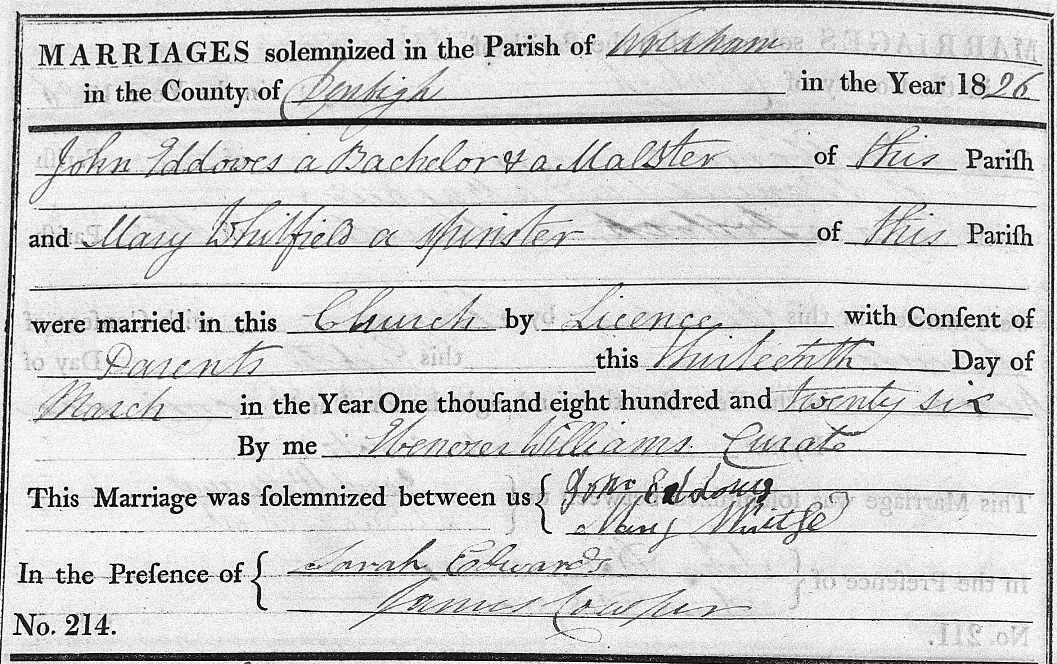 MARRIAGES solemnized in the Parish of Wrexham
in the County of Denbigh in the Year 1826
John Eddowes a Bachelor & a Malster of this Pariſh
and Mary Whitfield a Spinster of this Pariſh
were married in this Church by Licence with Conſent of
Parents this thirteenth Day of
March in the Year One thouſand eight hundred and twenty six
By me Ebenezer Williams Curate
This Marriage was ſolemnized between us { John Eddowes
Mary
In the Preſence of { Sarah Edwards
James Cowper
No. 214.